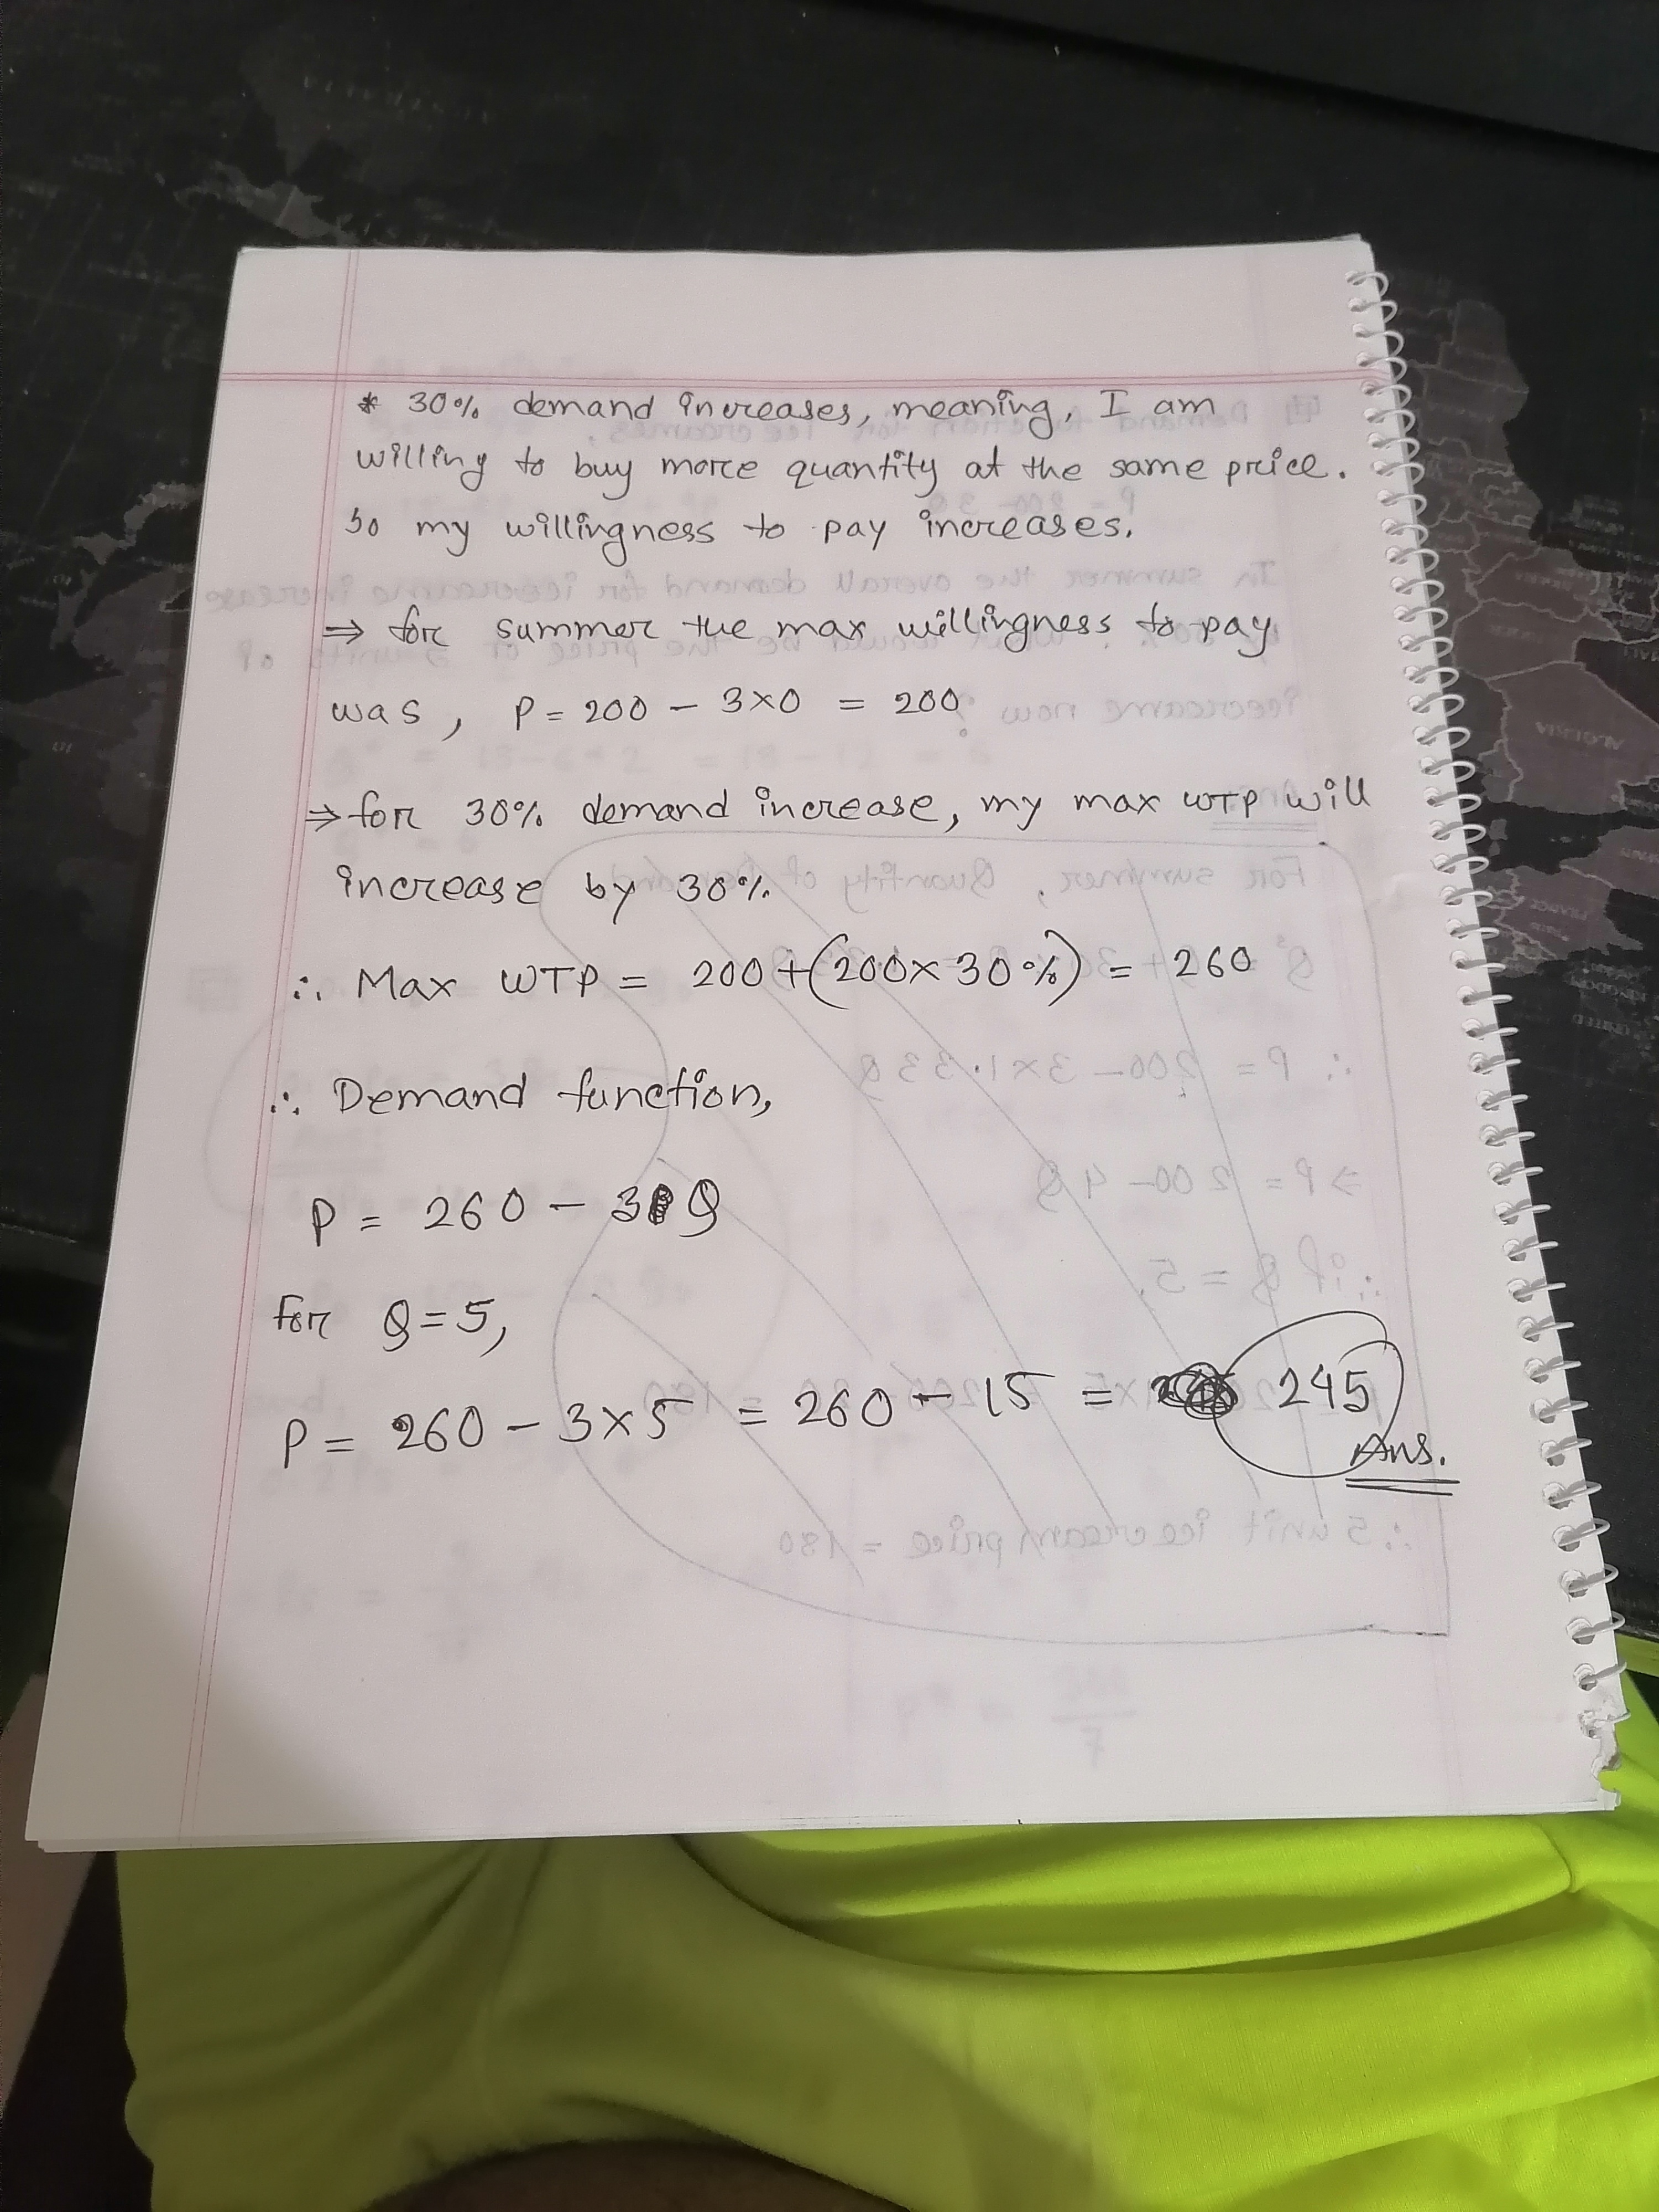 * 30% demand increases, meaning, I am
willing to buy more quantity at the same price.
So my willingness to pay increases.
⇒ for summer the max willingness to pay
was, P = 200 - 3×0 = 200
⇒ for 30% demand increase, my max WTP will
increase by 30%.
∴ Max WTP = 200+(200×30%) = 260
∴ Demand function,
P = 260 - 3Q
For Q=5,
P = 260 - 3×5 = 260 - 15 = 245
Ans.